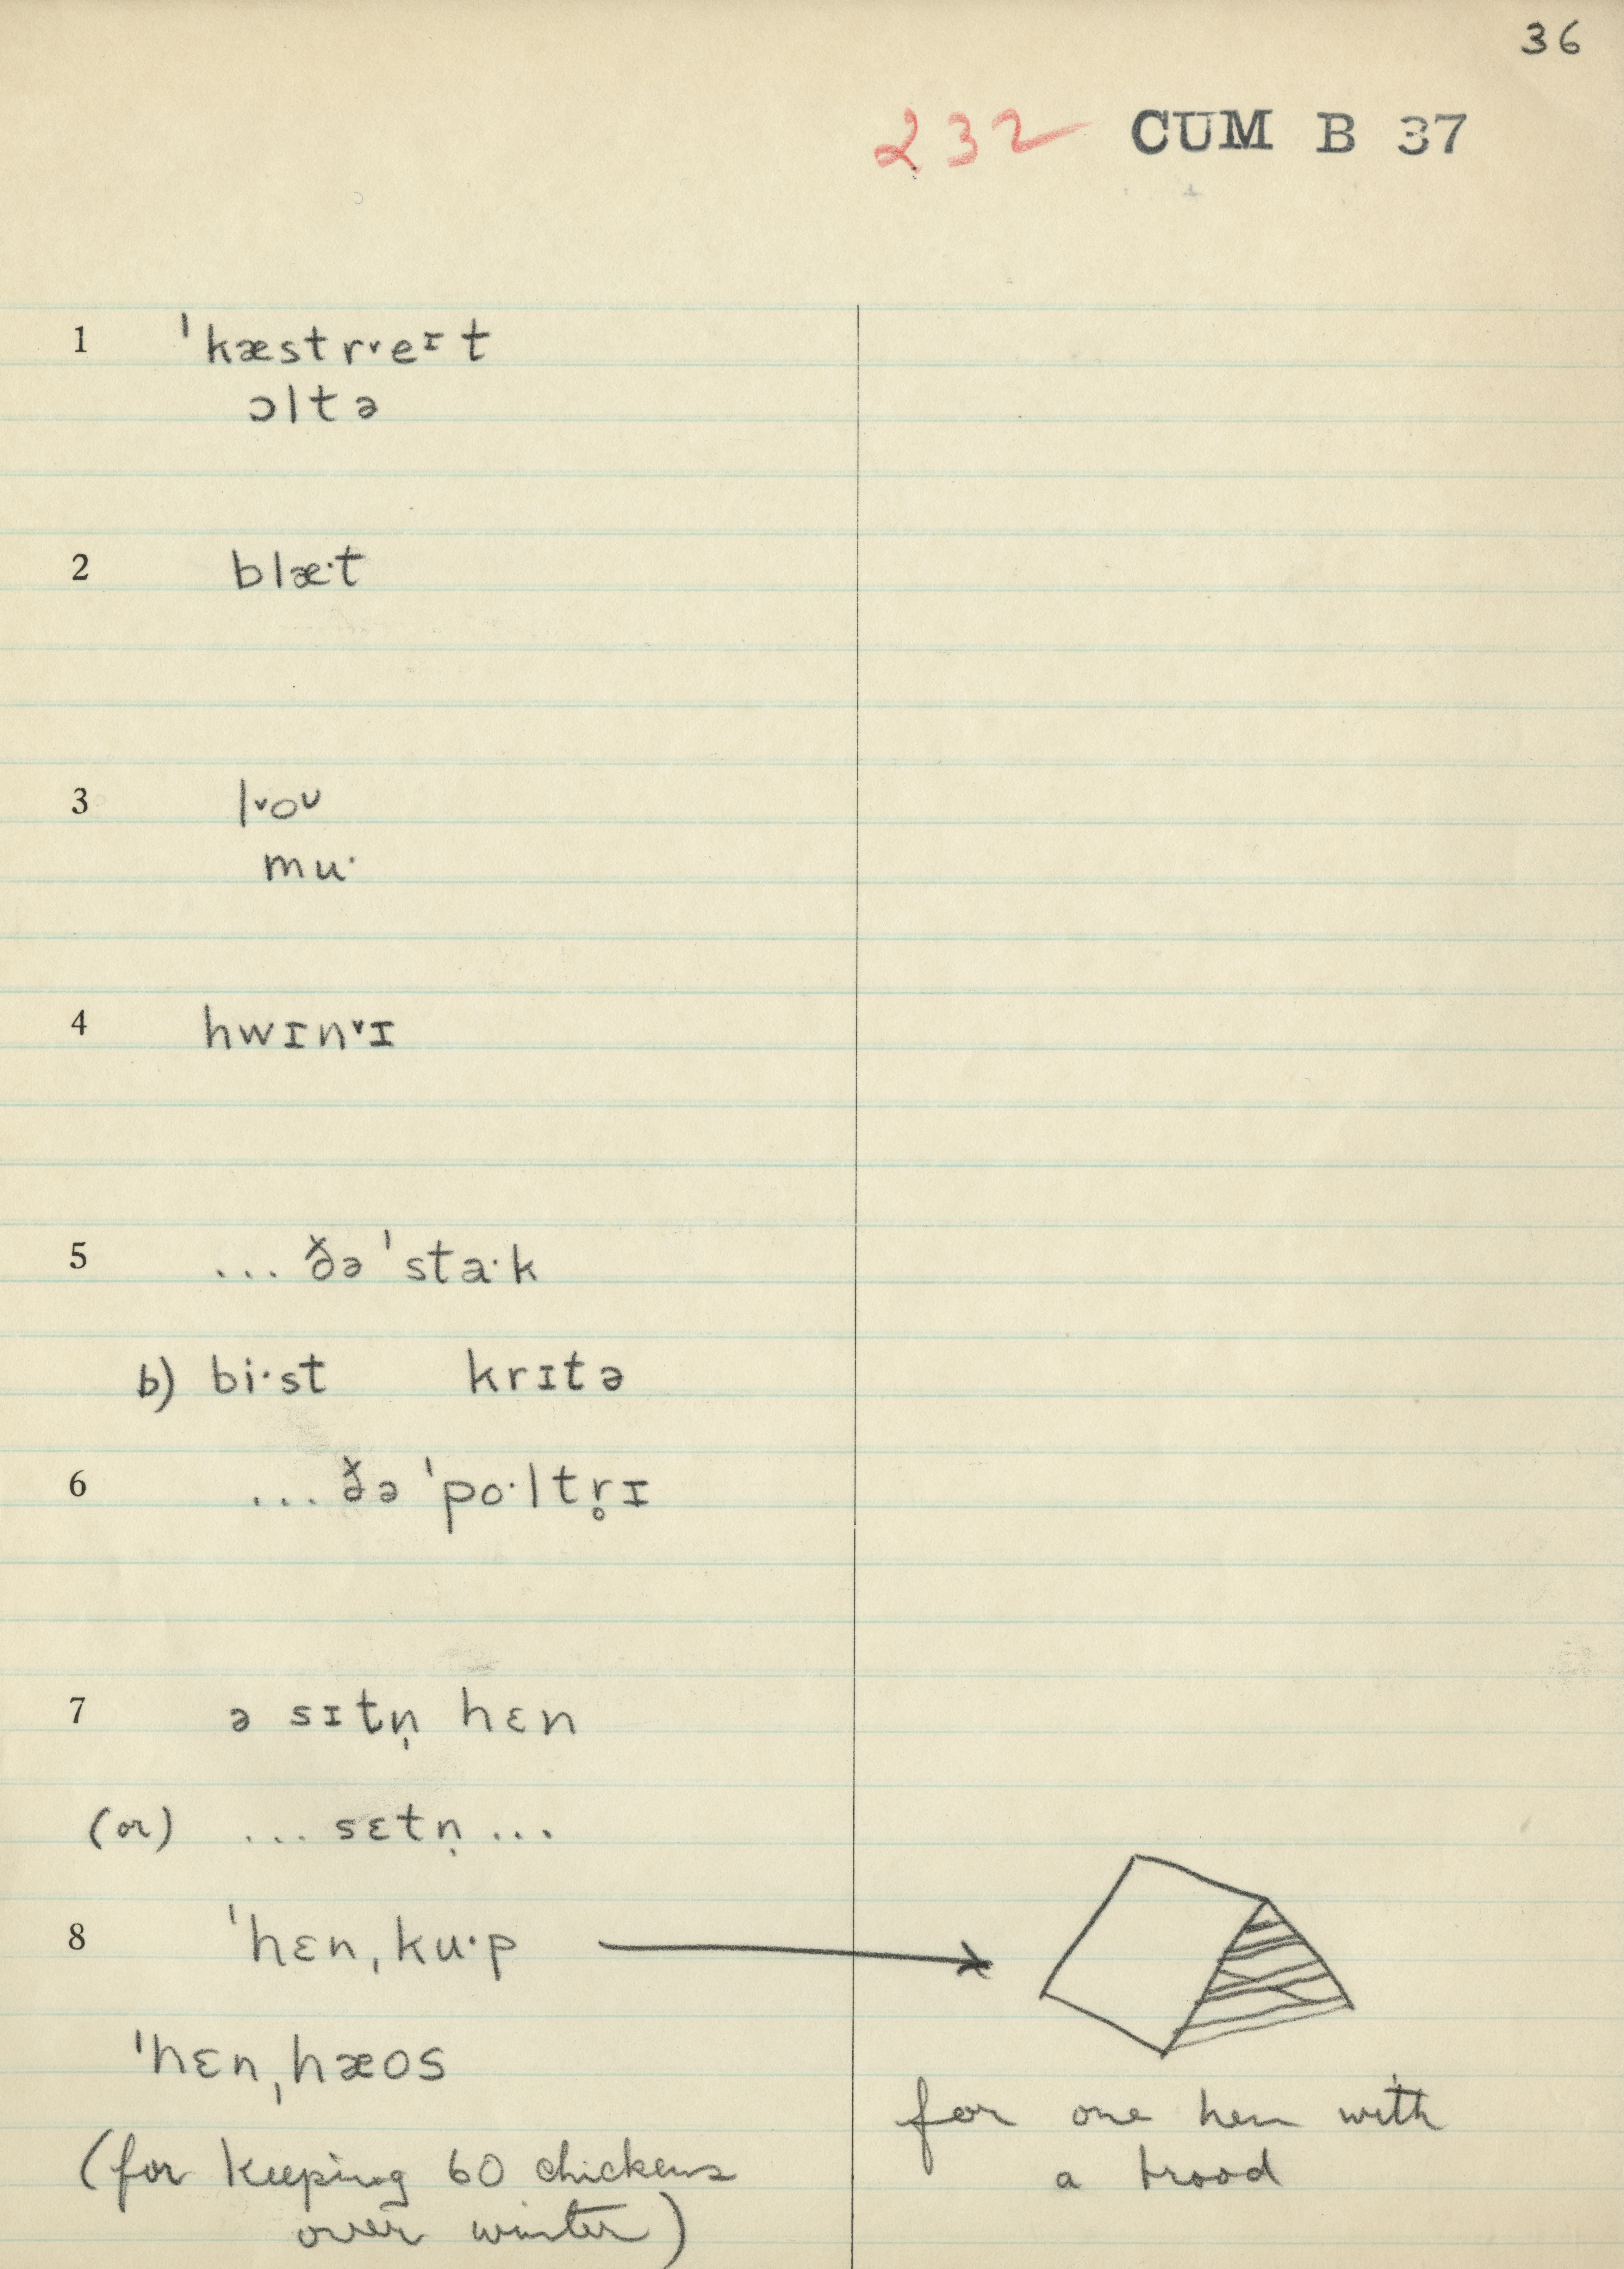 36
232 CUM B 37
1 ˈkæstrᵛeᶦt
ɔltə
2 blæ·t
3 lᵛoᴜ
mu·
4 hwɪnᵛɪ
5 ... ðə ˈsta·k
b) bi·st krɪtə
6 ... ðə ˈpo·ltr̥ɪ
7 ə sɪtn̩ hɛn
(or) ... sɛtn̩ ...
8 ˈhɛnˌku·p
ˈhɛnˌhæos
(for keeping 60 chickens
over winter)
for one hen with
a brood